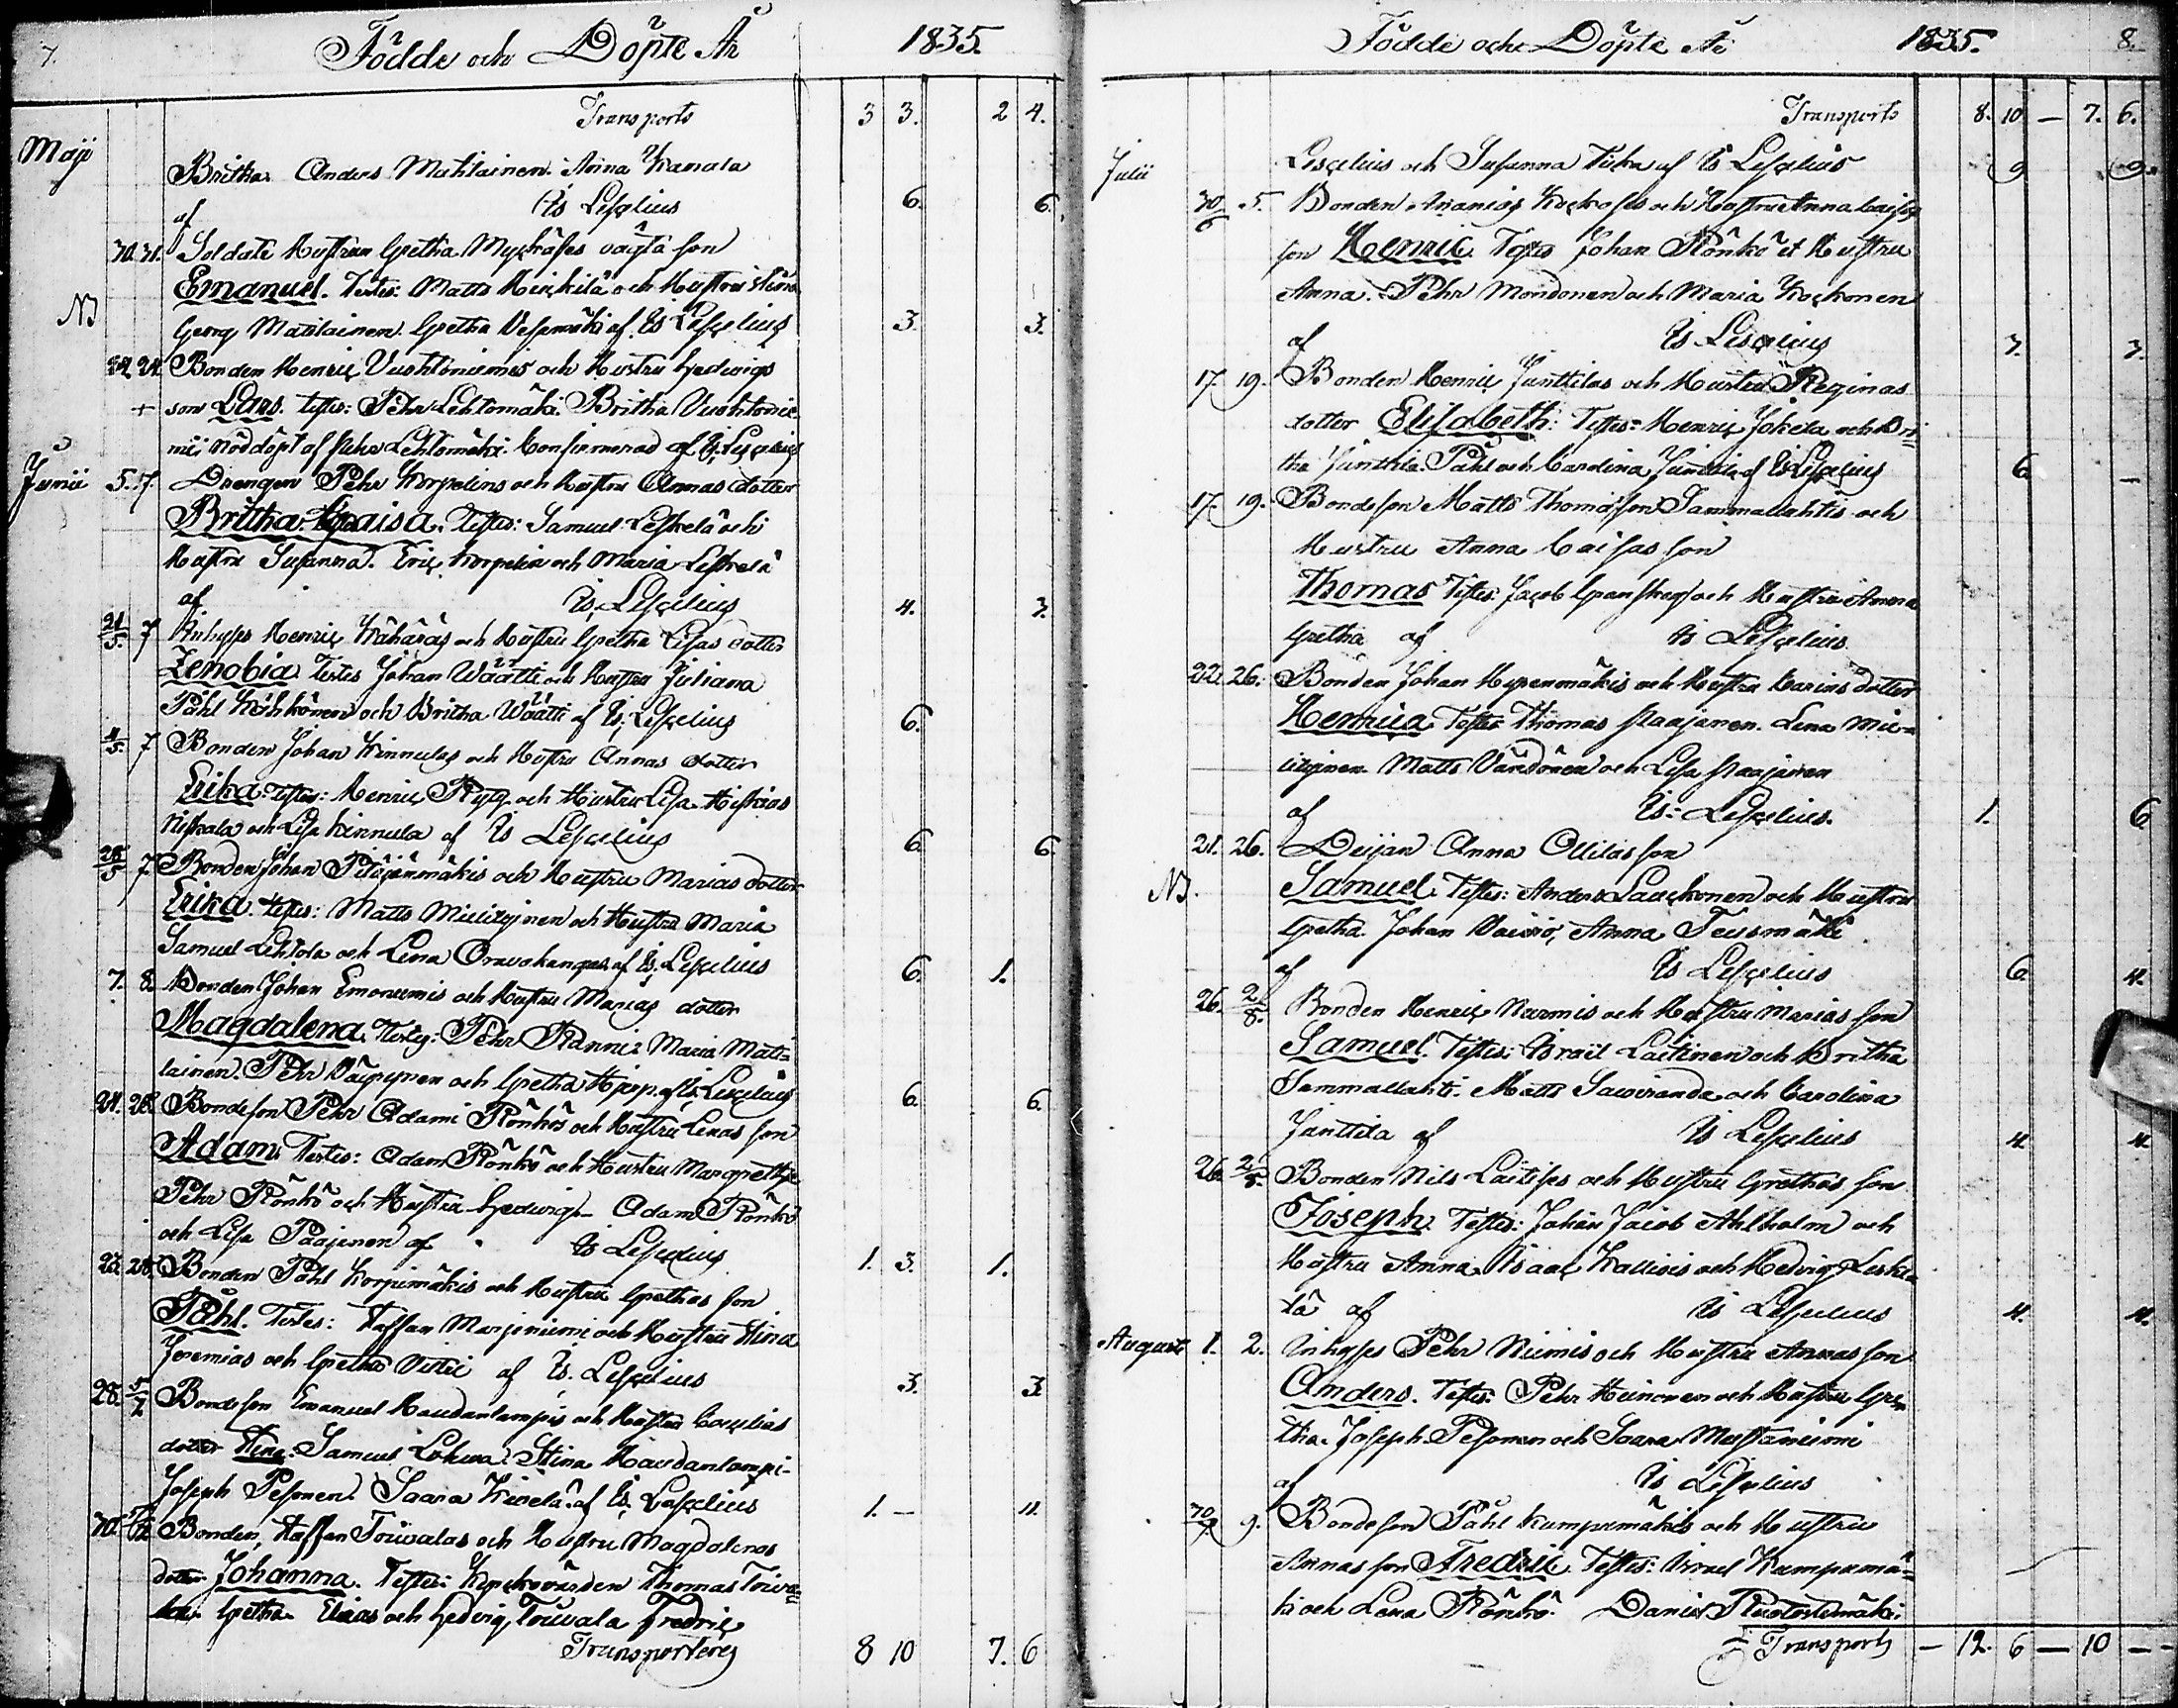 7.
Födde och Döpte År 1835.
Transports 3 3. 2 4.
Maji
Britha. Anders Matilainen. Anna Kanala
af Is Lesçelius 6. 6.
30. 31. Soldate Hustrun Gretha son
Emanuel. Testes: Matts och Hustru Stina
NB Georg Matilainen. Gretha af Is Lesçelius 3. 3.
24. 24. Bonden Henriç Vuohtoniemis och Hustru Hedwigs
+ son Lars. testes: Pehr Lehtomäki. Britha Vuohtonie
mi. nöddöpt af Pehr Lehtomäki. Confirmerad af Is Lesçelius
Junii 5. 7. Drengen Pehr Korpelins och Hustru Annas dotter
Britha Caisa. Testes: Samuel Leskelä och
Hustru Susanna. Eriç Korpelin och Maria Leskelä
af Is Lesçelius 4. 3.
21/5. 7 Inhyses Henriç och Hustru Gretha Lisas dotter
Zenobia. Testes Johan Wäätti och Hustru Juliana
Påhl och Britha Wäätti af Is. Lesçelius 6.
7 Bonden Johan Kinnulas och Hustru Annas dotter
Erika. testes: Henriç och Hustru Lisa.
Niskala och Lisa Kinnula af Is Lesçelius 6. 6.
28/5 7. Bonden Johan Pitäjänmäkis och Hustru Marias dotter
Erika. testes: Matts Mielityinen och Hustru Maria
Samuel Lehtola och Lena Oravakangas af Is. Lesçelius 6. 1.
7. 8. Bonden Johan Emoniemis och Hustru Marias dotter
Magdalena. Testes: Pehr Ranni: Maria Mati=
lainen. Pehr Väyrynen och Gretha af Is. Lesçelius 6. 6.
24. 28. Bondeson Pehr Adami Rönkös och Hustru Lenas son
Adam. Testes: Adam Rönkö och Hustru Margretha
Pehr Rönkö och Hustru Hedwig. Adam Rönkö
och Lisa Paajanen af Is Lesçelius 1. 3. 1.
23. 28. Bonden Påhl Korpimäkis och Hustru Grethas son
Påhl. Testes: Staffan Marjoniemi och Hustru Stina
Jeremias och Gretha af Is. Lesçelius 3. 3.
28. Bondeson Emanuel Haudanlampis och Hustru Cæcilias
dotter Stina: Samuel Stina Haudanlampi.
Joseph Pesonen. Saara Kivelä. af Is Lesçelius 1. — 11.
30. Bonden, Staffan Toiwalas och Hustru Magdalenas
dotter Johanna. Testes: Kyrckovärden Thomas Toiwa=
la Gretha. Elias och Hedvig Toiwala Fredriç
Transporteres 8 10 7. 6
Födde och Döpte År 1835. 8.
Transports 8. 10 — 7. 6.
Julii Lesçelius och Susanna af Is Lesçelius 9 9.
30/6 5. Bonden Ananias och Hustru Anna Caisas
son Henric. Testes Johan Rönkö et Hustru
Anna. Pehr Mondonen och Maria Kockonen
af Is Lesçelius 3. 3.
17. 19. Bonden Henriç Junttilas och Hustru Reginas
dotter Elisabeth: Testes: Henriç Jokela och Bri=
tha Junttila. Påhl och Carolina Junttila af Is Lesçelius 6 —
17. 19. Bondeson Matts Thomasson Sammallahtis och
Hustru Anna Caisas son
Thomas Testes: Jacob Granskog och Hustru Anna
Gretha af Is Lesçelius.
22. 26. Bonden Johan Mypenmäkis och Hustru Karins dotter
Henrica Testes Thomas Paajanen. Lena Mie=
lityinen. Matts och Lisa Paajanen
af Is: Lesçelius. 1. 6
21. 26. Deijan Anna Ollilas son
NB. Samuel. Testes: Anders Lauckonen och Hustru
Gretha. Johan Väisiö, Anna
af Is Lesçelius 6. 4.
26. 2/8. Bonden Henriç Nurmis och Hustru Marias son
Samuel. Testes: Israël Laitinen och Britha
Sammallahti. Matts Sawiranda och Carolina
Junttila af Is Lesçelius 4 4.
26. 2/8. Bonden Nils Laitises och Hustru Grethas son
Joseph. Testes: Johan Jacob Ahlholm och
Hustru Anna. Isaaç Kallisis och Hedvig Leske=
lä af Is Lesçelius 4. 4.
Augusti 1. 2. Inhyses Pehr Niemis och Hustru Annas son
Anders. Testes: Pehr Heinonen och Hustru Gre=
tha. Joseph Pesonen och Saara Mustaniemi
af Is Lesçelius
30/7 9. Bondeson Påhl Kumpumäkis och Hustru
Annas son Fredric. Testes: Israel Kumpumä=
ki och Lena Rönkö. Daniel
Transports — 12. 6 — 10 —